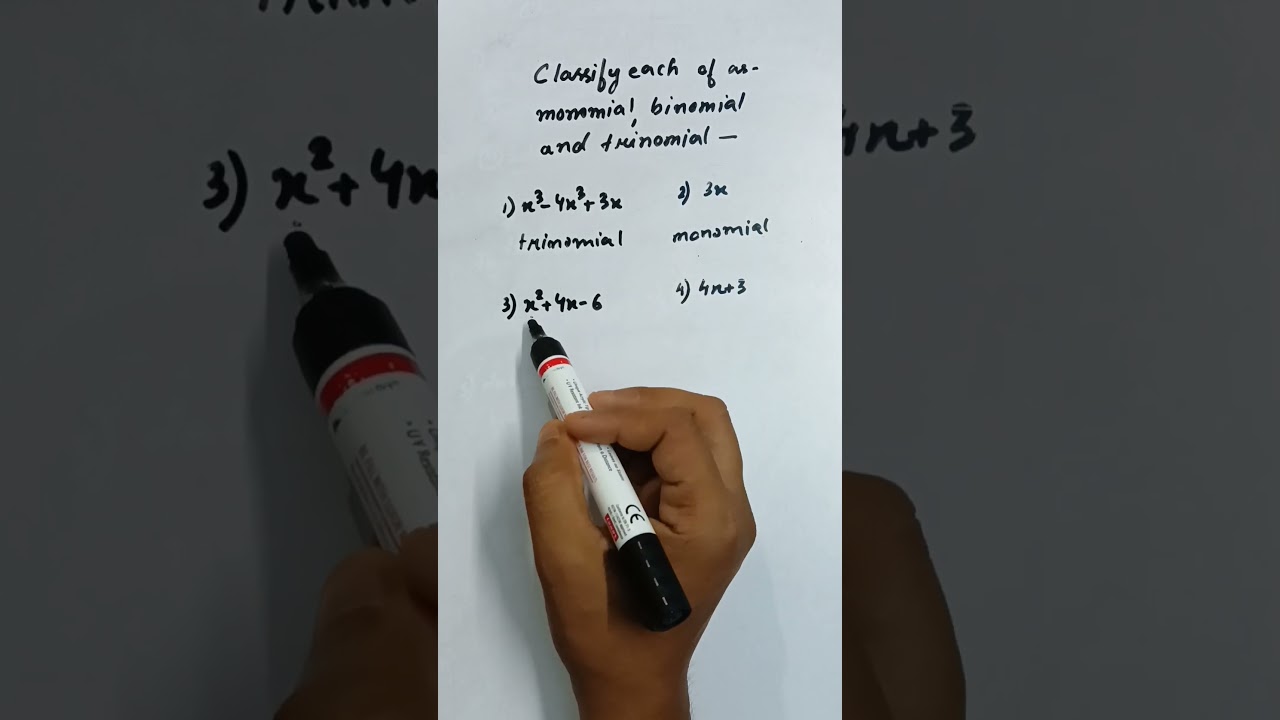 Classify each of as-
monomial, binomial
and trinomial —
1) x³-4x³+3x
2) 3x
trinomial
monomial
3) x²+4x-6
4) 4x+3
CE
3) x²+4x
4x+3